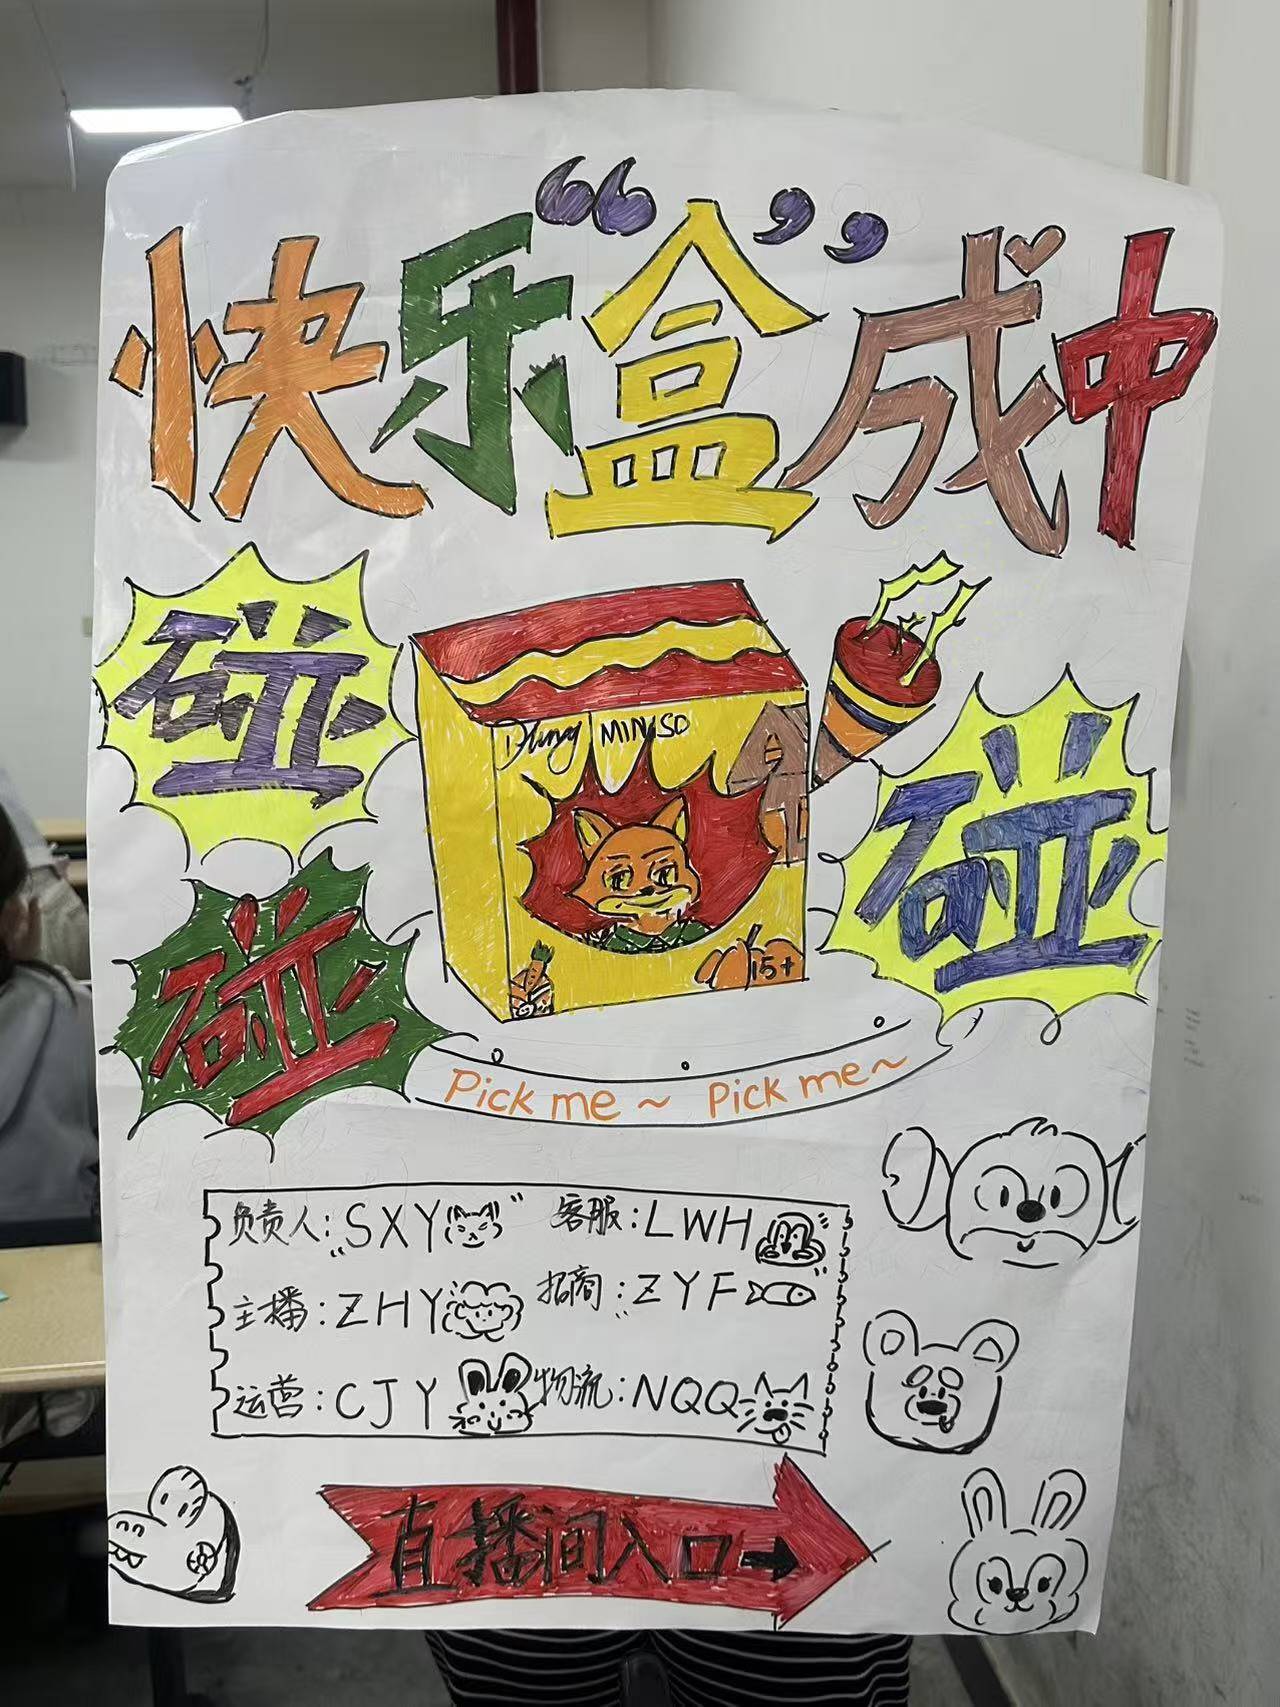 快乐“盒”成中
碰
碰
碰
Disney MINISO
15+
Pick me ~ Pick me ~
负责人:SXY 客服:LWH
主播:ZHY 招商:ZYF
运营:CJY 物流:NQQ
直播间入口→